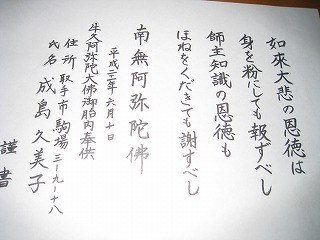 如来大悲の恩徳は
身を粉にしても報ずべし
師主知識の恩徳も
ほねをくだきても謝すべし
南無阿弥陀佛
平成二一年六月十日
牛久阿弥陀大佛御胎内奉供
住所 取手市駒場三ー九ー十八
氏名 成島久美子
謹書